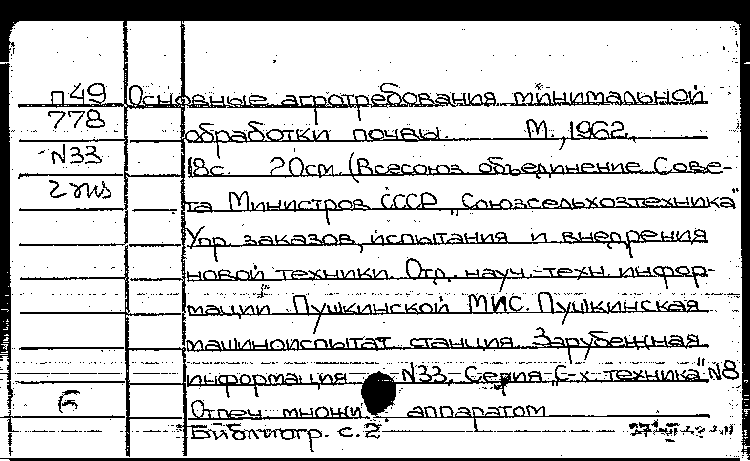 п49 Основные агротребования минимальной
778 обработки почвы. М., 1962.
N33 18с. 20см. (Всесоюз. объединение Сове-
2 та Министров СССР "Союзсельхозтехника"
Упр. заказов, испытания и внедрения
новой техники. Отд. науч.-техн. инфор-
мации Пушкинской МИС. Пушкинская
машиноиспытат. станция. Зарубежная
информация N33, Серия "С-х. техника" N8
Отпеч. множи аппаратом
Б Библиогр. с. 2